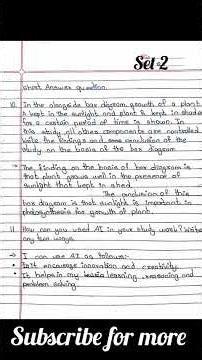 Set 2
Short Answer question.
10. In the alongside bar digram, growth of a plant
is kept in the sunlight and plant B kept in shade
for a certain period of time is shown. In
this study all other components are controlled.
Write the findings and conclusion of the
study on the basis of the bar diagram
→ The finding on the basis of bar diagram is
that plant grows well in the presence of
sunlight that kept in shed.
The conclusion of this
bar diagram is that sunlight is important in
photosynthesis for growth of plant.
11. How can you used AI in your study work? Write
any two ways.
→ I can use AI as follows:-
• It encourage innovation and creativity.
• It helps in my learning, reasoning and
problem solving
Subscribe for more